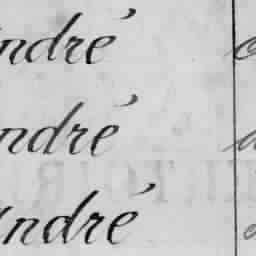 ndré
ndré
ndré